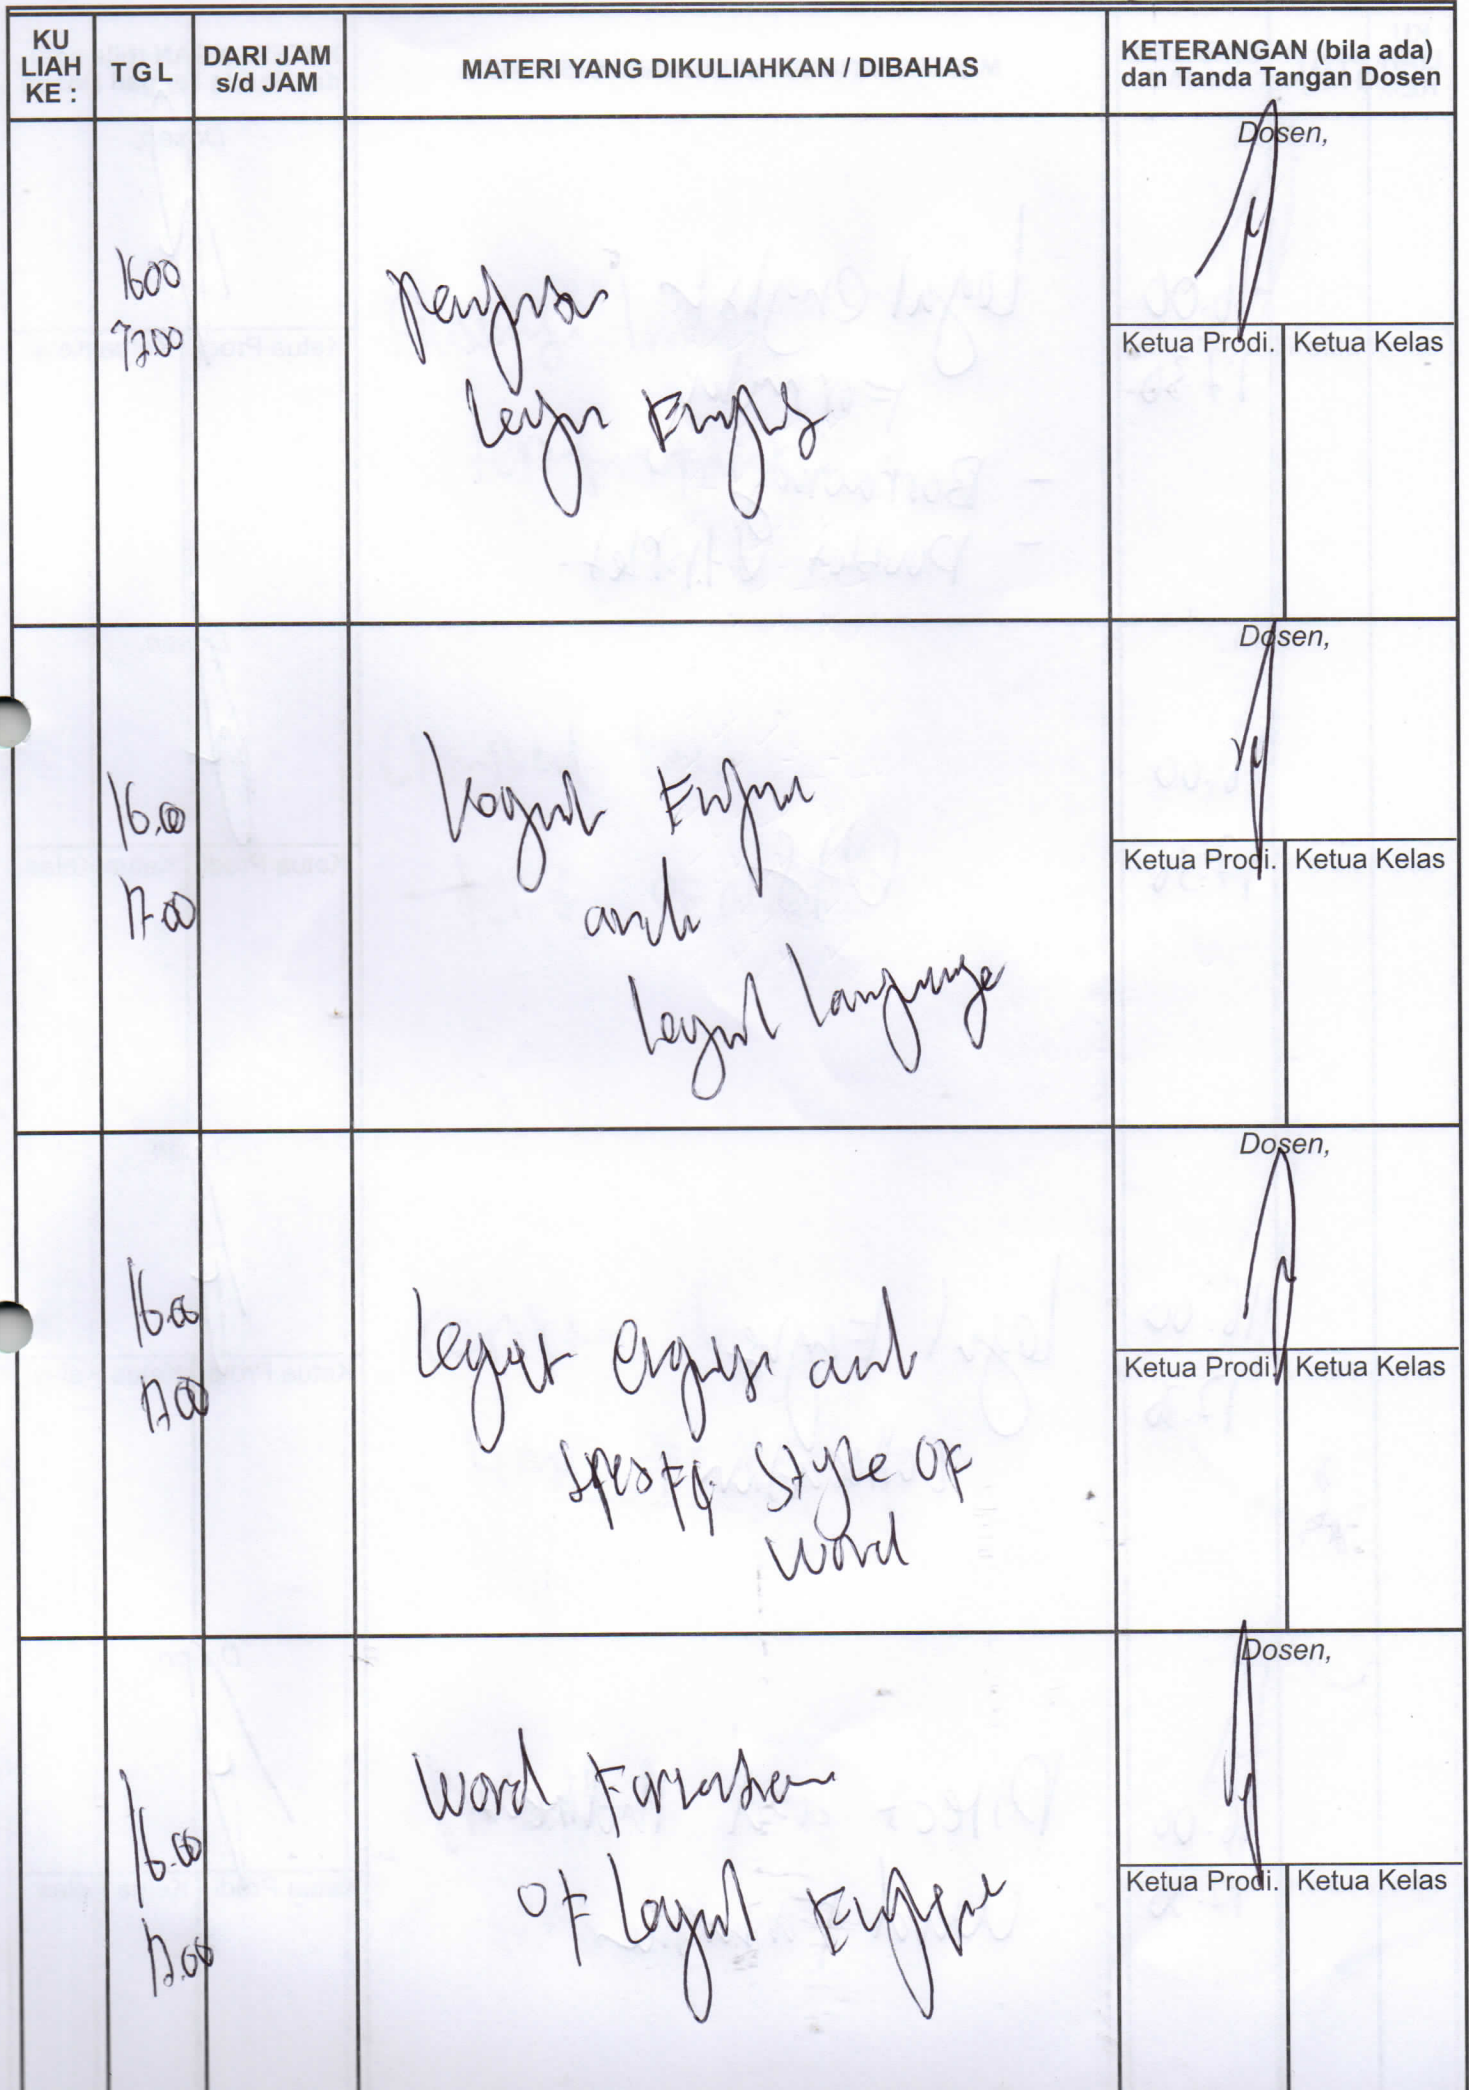 KU
LIAH
KE :
TGL
DARI JAM
s/d JAM
MATERI YANG DIKULIAHKAN / DIBAHAS
KETERANGAN (bila ada)
dan Tanda Tangan Dosen
Dosen,
1600
Legal English
Ketua Prodi. Ketua Kelas
Dosen,
16.00
17.00
Legal English
and
Legal Language
Ketua Prodi. Ketua Kelas
Dosen,
16.00
17.00
Legal English and
Style OF
Word
Ketua Prodi. Ketua Kelas
Dosen,
16.00
17.00
Word Formation
OF Legal English
Ketua Prodi. Ketua Kelas